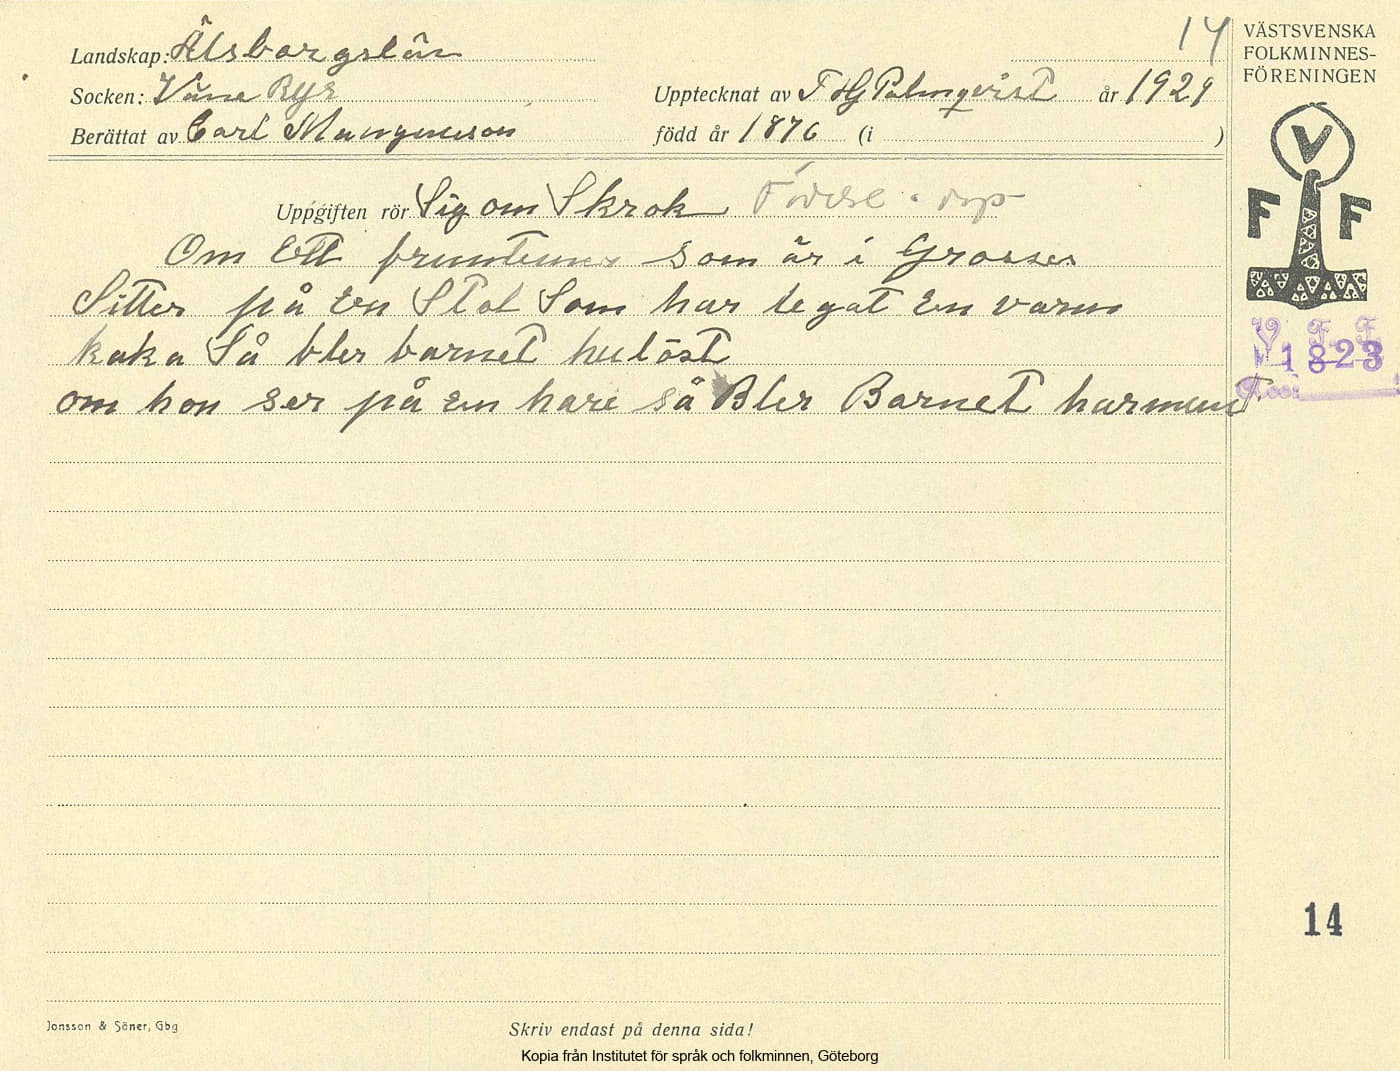 14
VÄSTSVENSKA
FOLKMINNES-
FÖRENINGEN
Landskap: Älsborgslän
Socken: Väne Ryr
Upptecknat av F HJ Palmqvist år 1929
Berättat av Carl Mangnusson född år 1876 (i )
Uppgiften rör Sig om Skrok Födelse - dop
Om Ett fruntimer som är i Grosses
Sitter på En Stol Som har legat En varm
kaka Så bler barnet huslöst
om hon ser på En hare så Bler Barnet harmunt.
V F F
V. F. F.
1823
14
Jonsson & Söner, Gbg
Skriv endast på denna sida!
Kopia från Institutet för språk och folkminnen, Göteborg